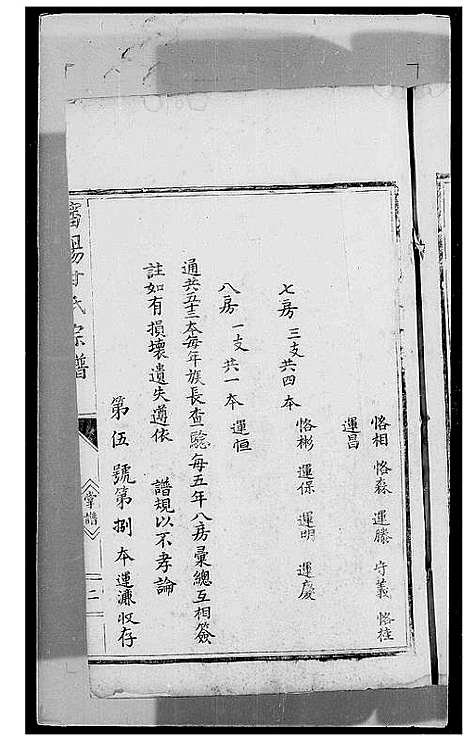 恪相 恪森 運勝 守義 恪桂
運昌
七房 三支共四本 恪彬 運保 運明 運慶
八房 一支共一本 運恒
通共五十三本每年族長查驗每五年八房彙總互相簽
註如有損壞遺失遵依 譜規以不孝論
第伍號第捌本運濂收存
陽甘氏宗譜
掌譜
二